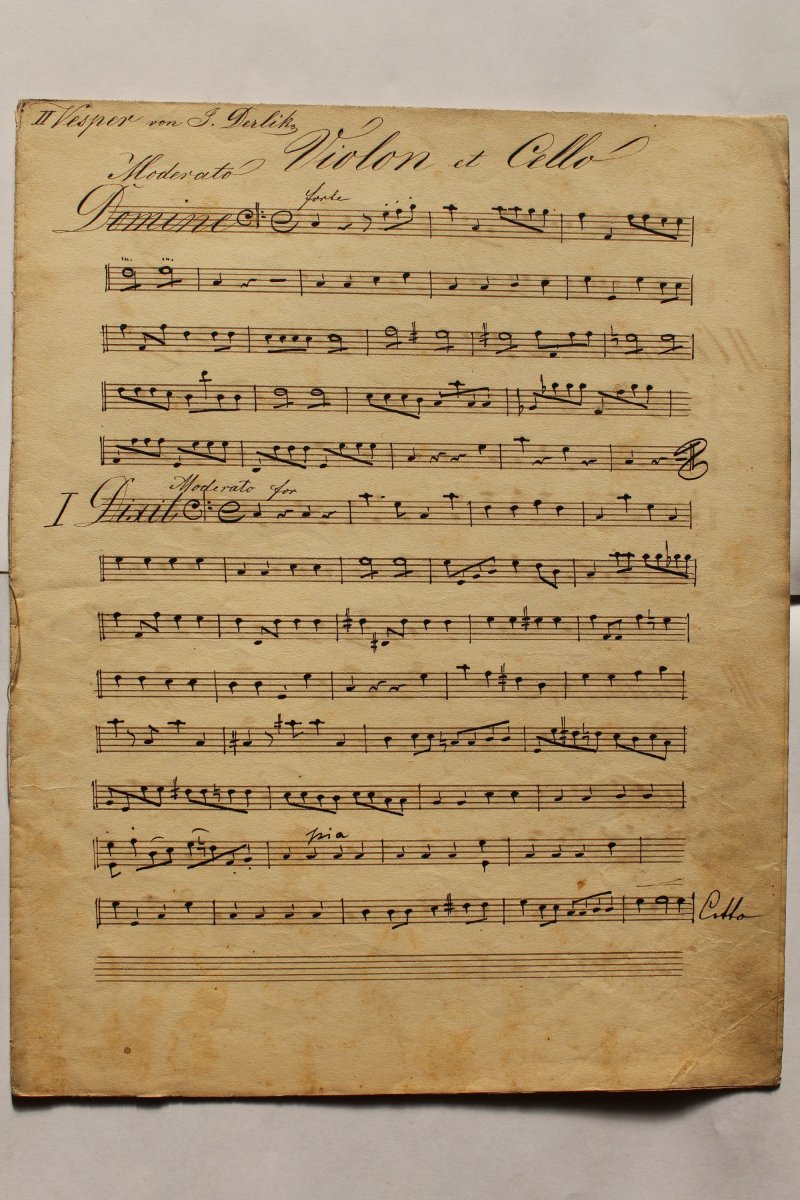 II Vesper von J. Derlik
Violon et Cello
Moderato
Domine
forte
I Dixit
Moderato for
pia
Cello